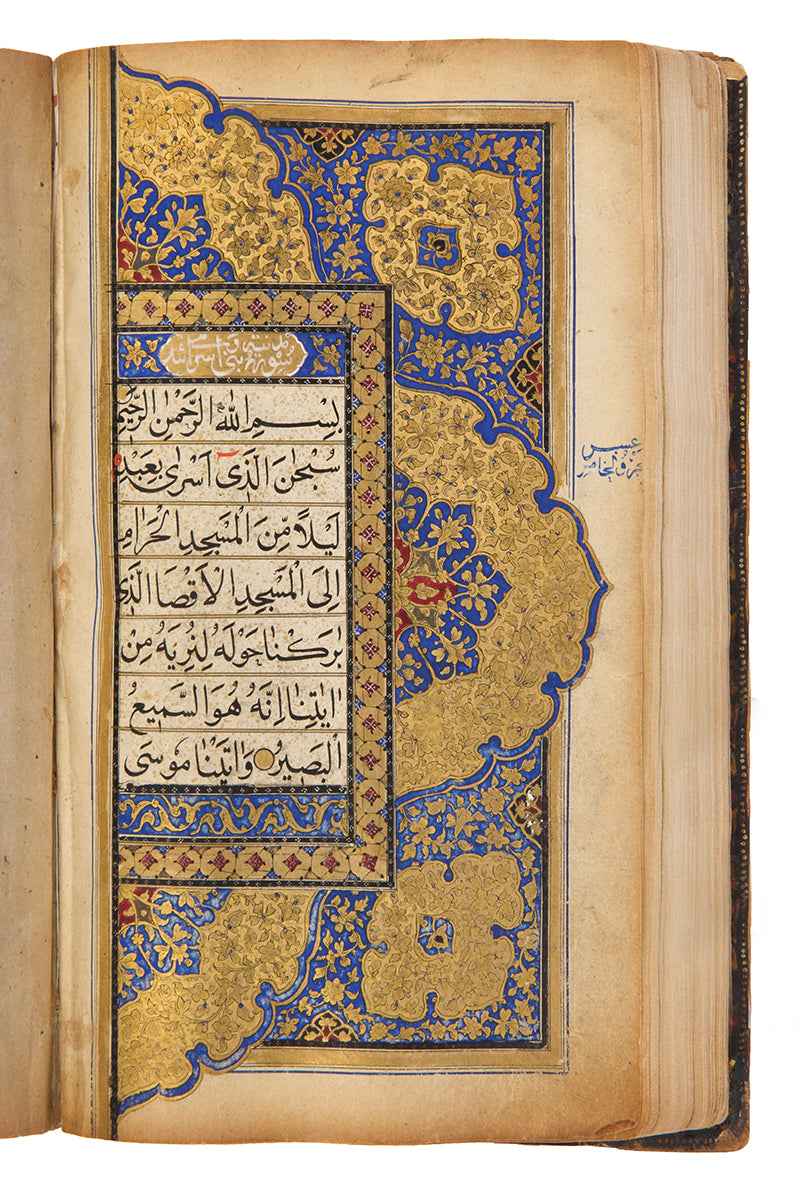 سورة بنی اسرا
بِسْمِ اللهِ الرَّحْمٰنِ الرَّحِيمِ
سُبْحٰنَ الَّذِىٓ اَسْرٰى بِعَبْدِهِ
لَيْلًا مِّنَ الْمَسْجِدِ الْحَرَامِ
اِلَى الْمَسْجِدِ الْاَقْصَا الَّذِى
بٰرَكْنَا حَوْلَهُ لِنُرِيَهُ مِنْ
اٰيٰتِنَا اِنَّهُ هُوَ السَّمِيعُ
الْبَصِيرُ وَاٰتَيْنَا مُوسَى
عشر
جزو الخامس